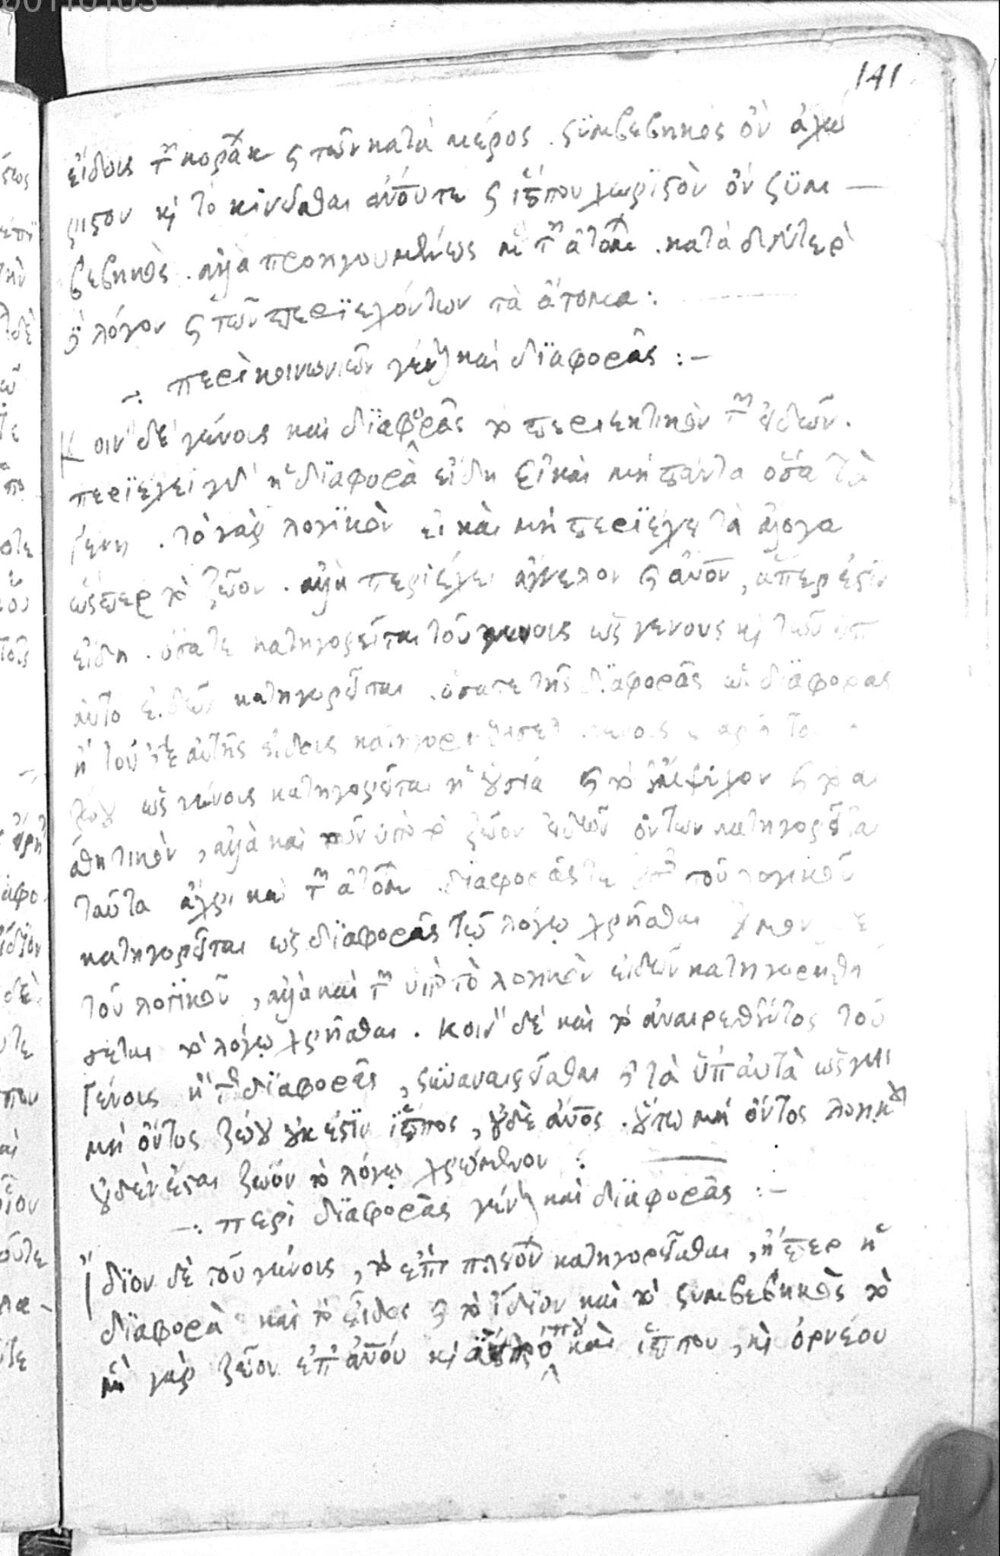 141
εἴδους τῶν κοράκων καὶ τῶν κατὰ μέρος. συμβεβηκὸς ὂν ἀχώ
ριστον καὶ τὸ κινεῖσθαι ἀνθρώπου τε καὶ ἵππου χωριστὸν ὂν συμ —
βεβηκὸς. ἀλλὰ προηγουμένως μὲν τῶν ἀτόμων. κατὰ δεύτερον
δὲ λόγον καὶ τῶν περιεχόντων τὰ ἄτομα :
περὶ κοινωνιῶν γένους καὶ διαφορᾶς : —
Κοινὸν δὲ γένους καὶ διαφορᾶς τὸ περιεκτικὸν τῶν εἰδῶν.
περιέχει γὰρ ἡ διαφορὰ εἴδη εἰ καὶ μὴ πάντα ὅσα τὰ
γένη. τὸ γὰρ λογικὸν εἰ καὶ μὴ περιέχει τὰ ἄλογα
ὥσπερ τὸ ζῶον. ἀλλὰ περιέχει ἄγγελον καὶ ἄνθρωπον, ἅπερ ἐστὶν
εἴδη. ὅσα τε κατηγορεῖται τοῦ γένους ὡς γένους καὶ τῶν ὑπ
αὐτὸ εἰδῶν κατηγορεῖται. ὅσα τε τῆς διαφορᾶς ὡς διαφορᾶς
καὶ τοῦ ἐξ αὐτῆς εἴδους
ζώου ὡς γένους κατηγορεῖται ἡ οὐσία καὶ τὸ ἔμψυχον καὶ τὸ αἰ
σθητικὸν, ἀλλὰ καὶ τῶν ὑπὸ τὸ ζῶον εἰδῶν ὄντων κατηγορεῖται
ταῦτα ἄχρι καὶ τῶν ἀτόμων. διαφορᾶς τε τοῦ λογικοῦ
κατηγορεῖται ὡς διαφορᾶς τῷ λόγῳ χρῆσθαι οὐ μόνον
τοῦ λογικοῦ, ἀλλὰ καὶ τῶν ὑπὸ τὸ λογικὸν εἰδῶν κατηγορηθή
σεται τὸ λόγῳ χρῆσθαι. κοινὸν δὲ καὶ τὸ ἀναιρεθέντος τοῦ
γένους ἢ τῆς διαφορᾶς, συναναιρεῖσθαι καὶ τὰ ὑπ' αὐτὰ ὡς γὰρ
μὴ ὄντος ζώου οὐκ ἔστιν ἵππος, οὐδὲ ἄνθρωπος. οὕτω μὴ ὄντος λογικοῦ
οὐδὲν ἔσται ζῶον τὸ λόγῳ χρώμενον :
—: περὶ διαφορᾶς γένους καὶ διαφορᾶς : —
Ἴδιον δὲ τοῦ γένους, τὸ ἐπὶ πλειόνων κατηγορεῖσθαι, ἤπερ ἡ
διαφορὰ καὶ τὸ εἶδος καὶ τὸ ἴδιον καὶ τὸ συμβεβηκὸς τὸ
μὲν γὰρ ζῶον ἐπ' ἀνθρώπου καὶ καὶ ἵππου, καὶ ὀρνέου